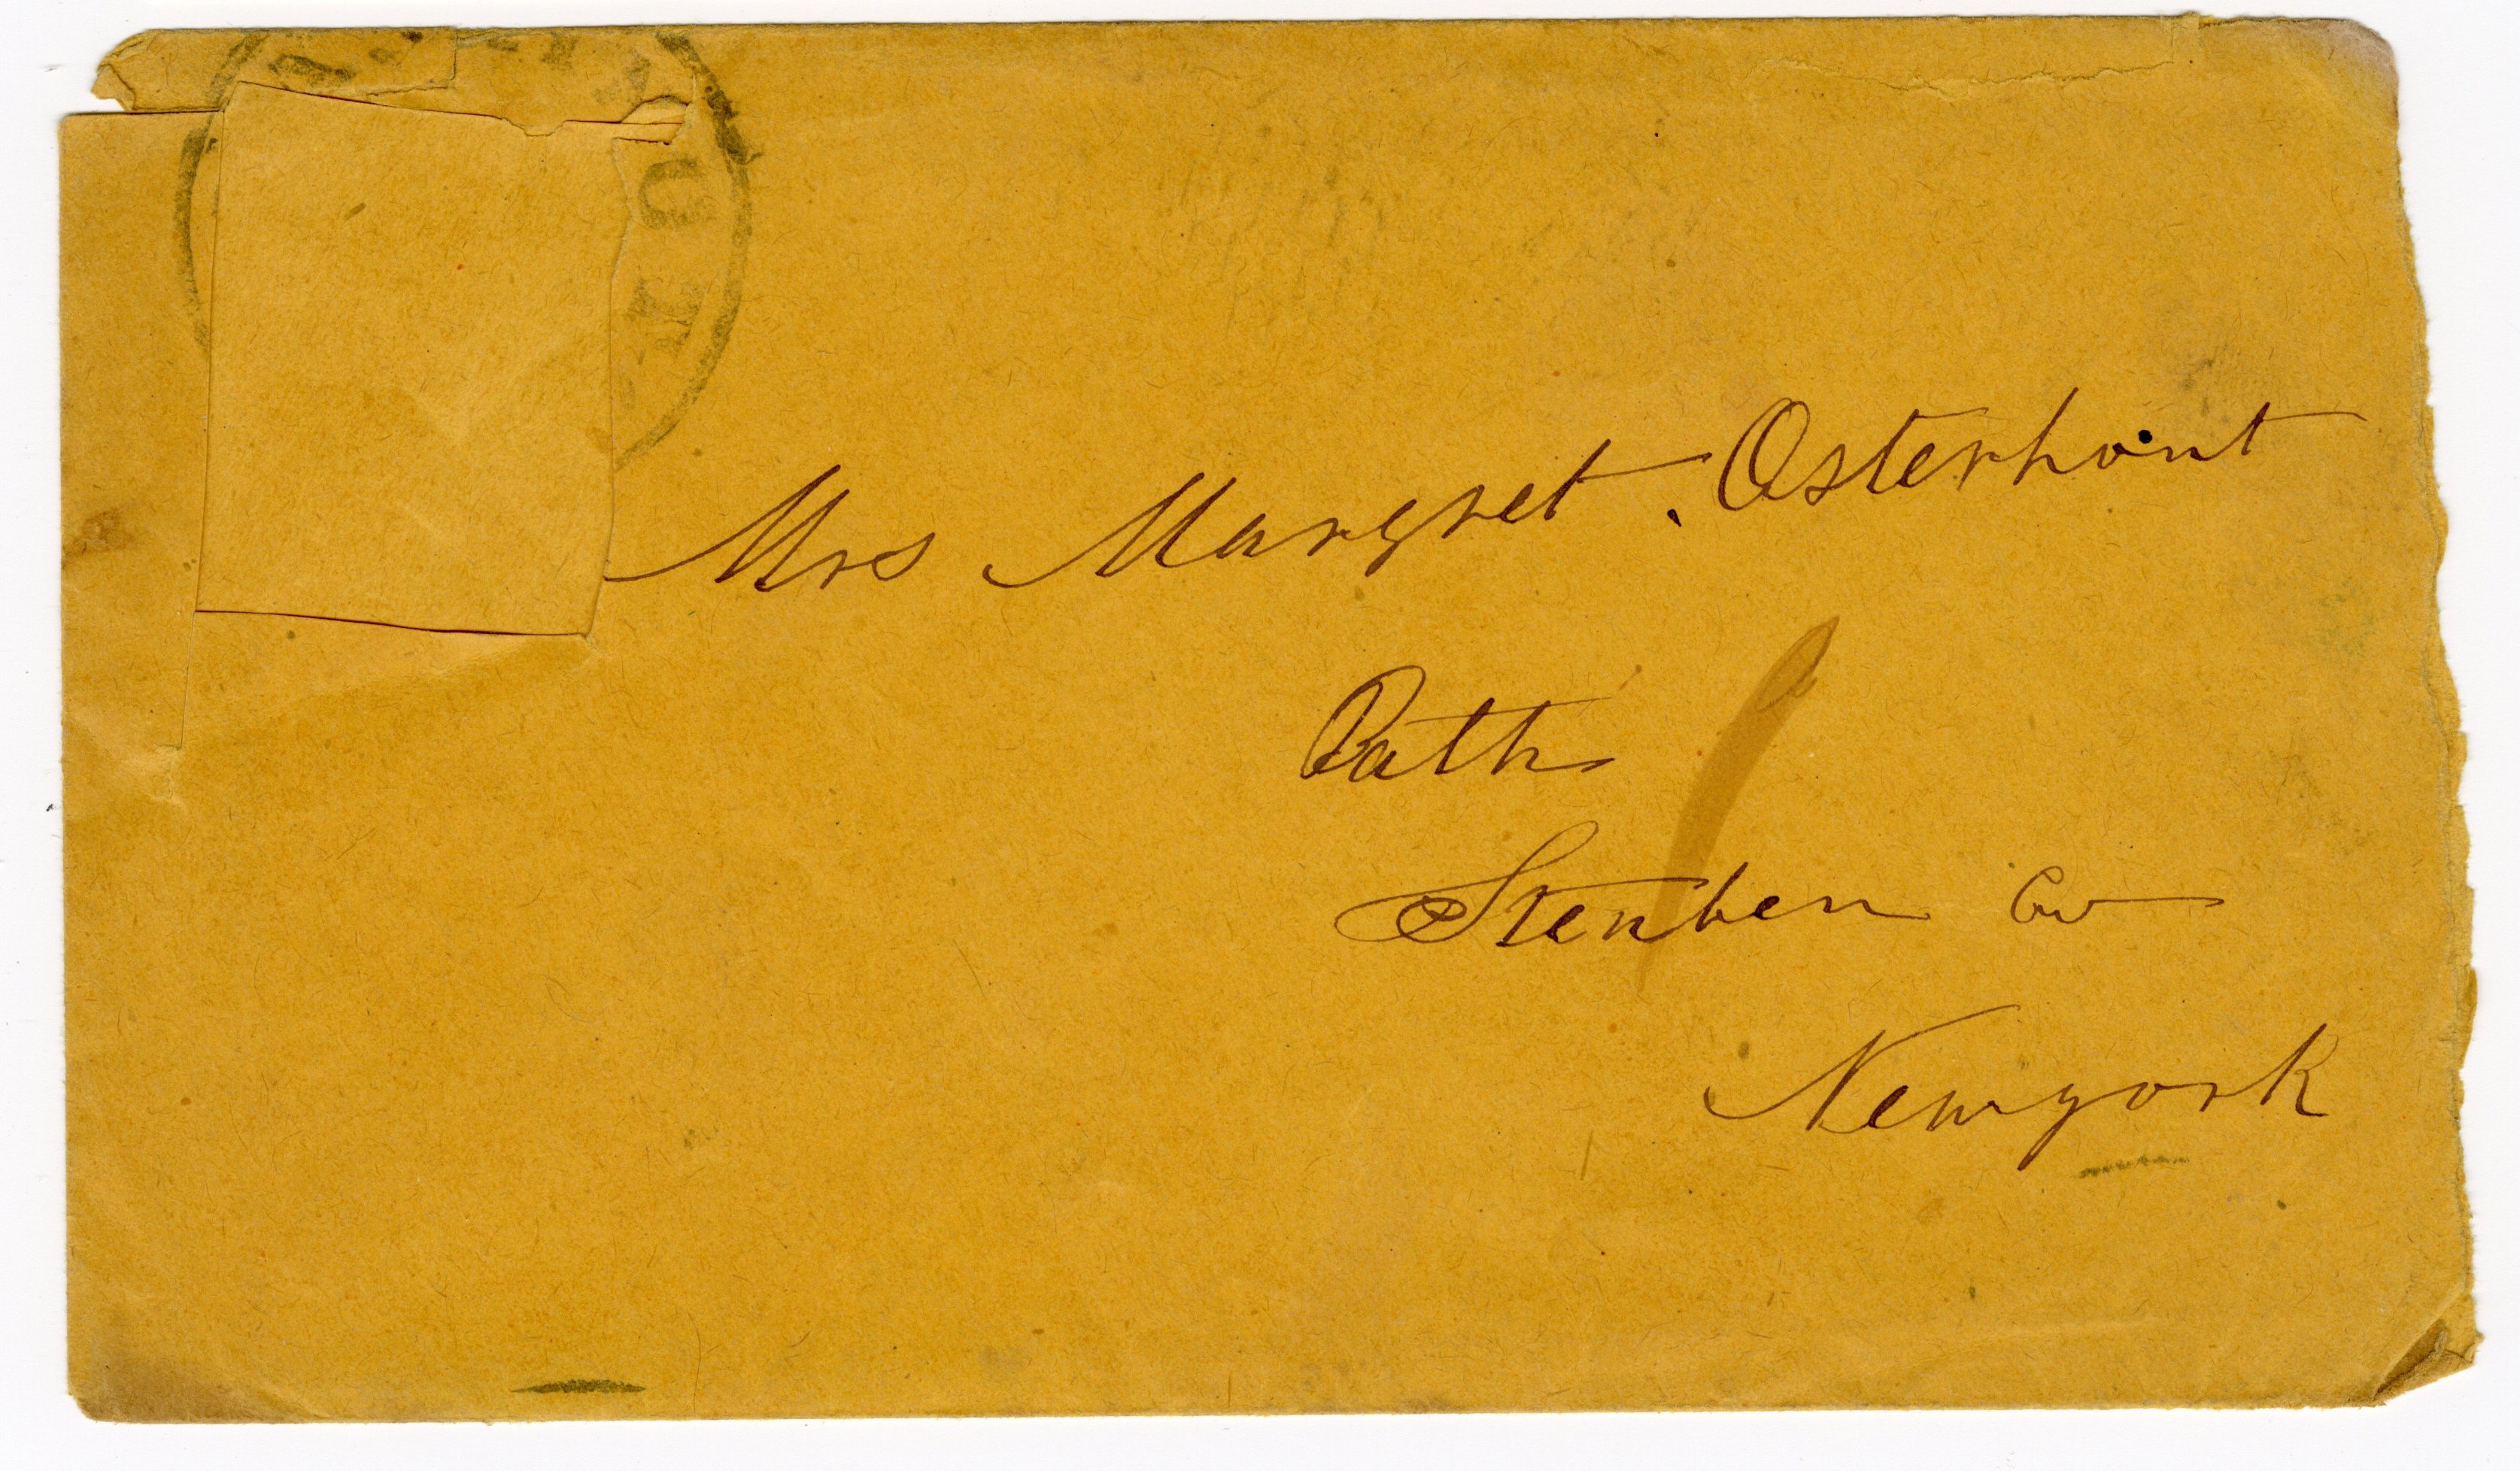 Mrs Margret. Osterhout
Bath
Steuben Co
Newyork